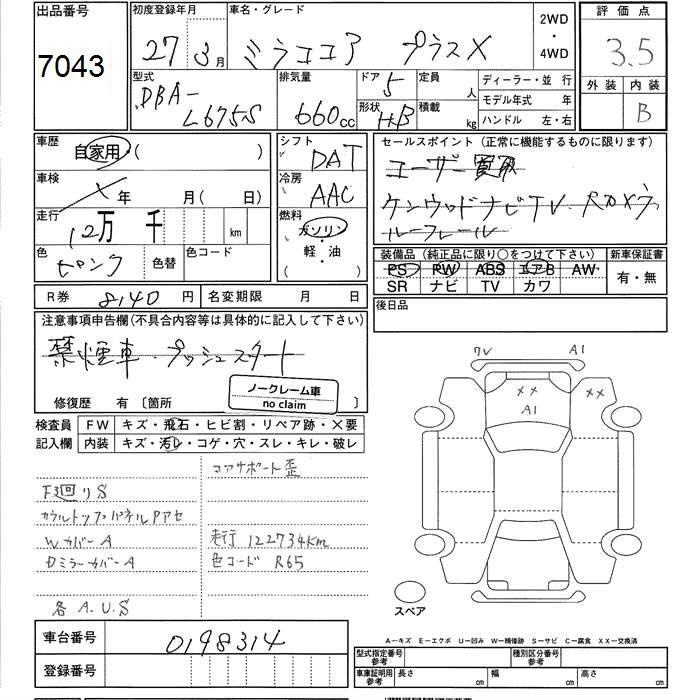 出品番号
7043
初度登録年月
27 3月
車名・グレード
ミラココア プラスX
2WD
・
4WD
評価点
3.5
外装 内装
B
型式
DBA-
L675S
排気量
660cc
ドア
5
形状
HB
定員 人
積載 kg
ディーラー・並 行
モデル年式 年
ハンドル 左・右
車歴
自家用 ( )
車検
年 月( 日)
走行
12万 千 km
色
ピンク
色替
色コード
シフト
DAT
冷房
AAC
燃料
ガソリン
・
軽・油
セールスポイント (正常に機能するものに限ります)
ユーザー買取
ケンウッドナビTV
ルーフレール
装備品 (純正品に限り○をつけて下さい)
PS PW ABS エアB AW
SR ナビ TV カワ
新車保証書
有・無
R券 8140 円
名変期限 月 日
後日品
注意事項申告欄(不具合内容等は具体的に記入して下さい)
禁煙車・プッシュスタート
修復歴 有 〔箇所 〕
ノークレーム車
no claim
検査員
記入欄
FW キズ・飛石・ヒビ割・リペア跡・X要
内装 キズ・汚レ・コゲ・穴・スレ・キレ・破レ
コアサポート歪
F廻りS
カウルトップパネルPアセ
WカバーA
DミラーカバーA
各 A.U.S
走行 122734Km
色コード R65
7V A1
XX XX
A1
スペア
A-キズ E-エクボ U-凹み W-補修跡 S-サビ C-腐食 XX-交換済
車台番号 0198314
登録番号
型式指定番号
参考
種別区分番号
参考
車庫証明用
参考
長さ cm
幅 cm
高さ cm